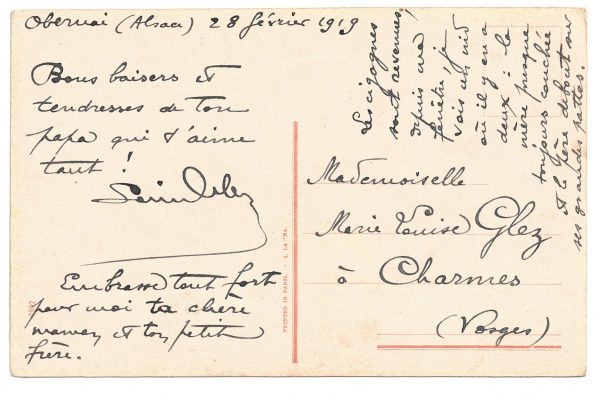 Obernai (Alsace) 28 février 1919
Bons baisers et
tendresses de ton
papa qui t'aime
tant !
Embrasse tout fort
pour moi ta chère
maman et ton petit
frère.
Les cigognes
sont revenues,
depuis ma
fenêtre, je
vois un nid
où il y en a
deux : la
mère presque
toujours couchée
et le père debout sur
ses grandes pattes.
Mademoiselle
Marie Louise Glez
à Charmes
(Vosges)
PRINTED IN PARIS